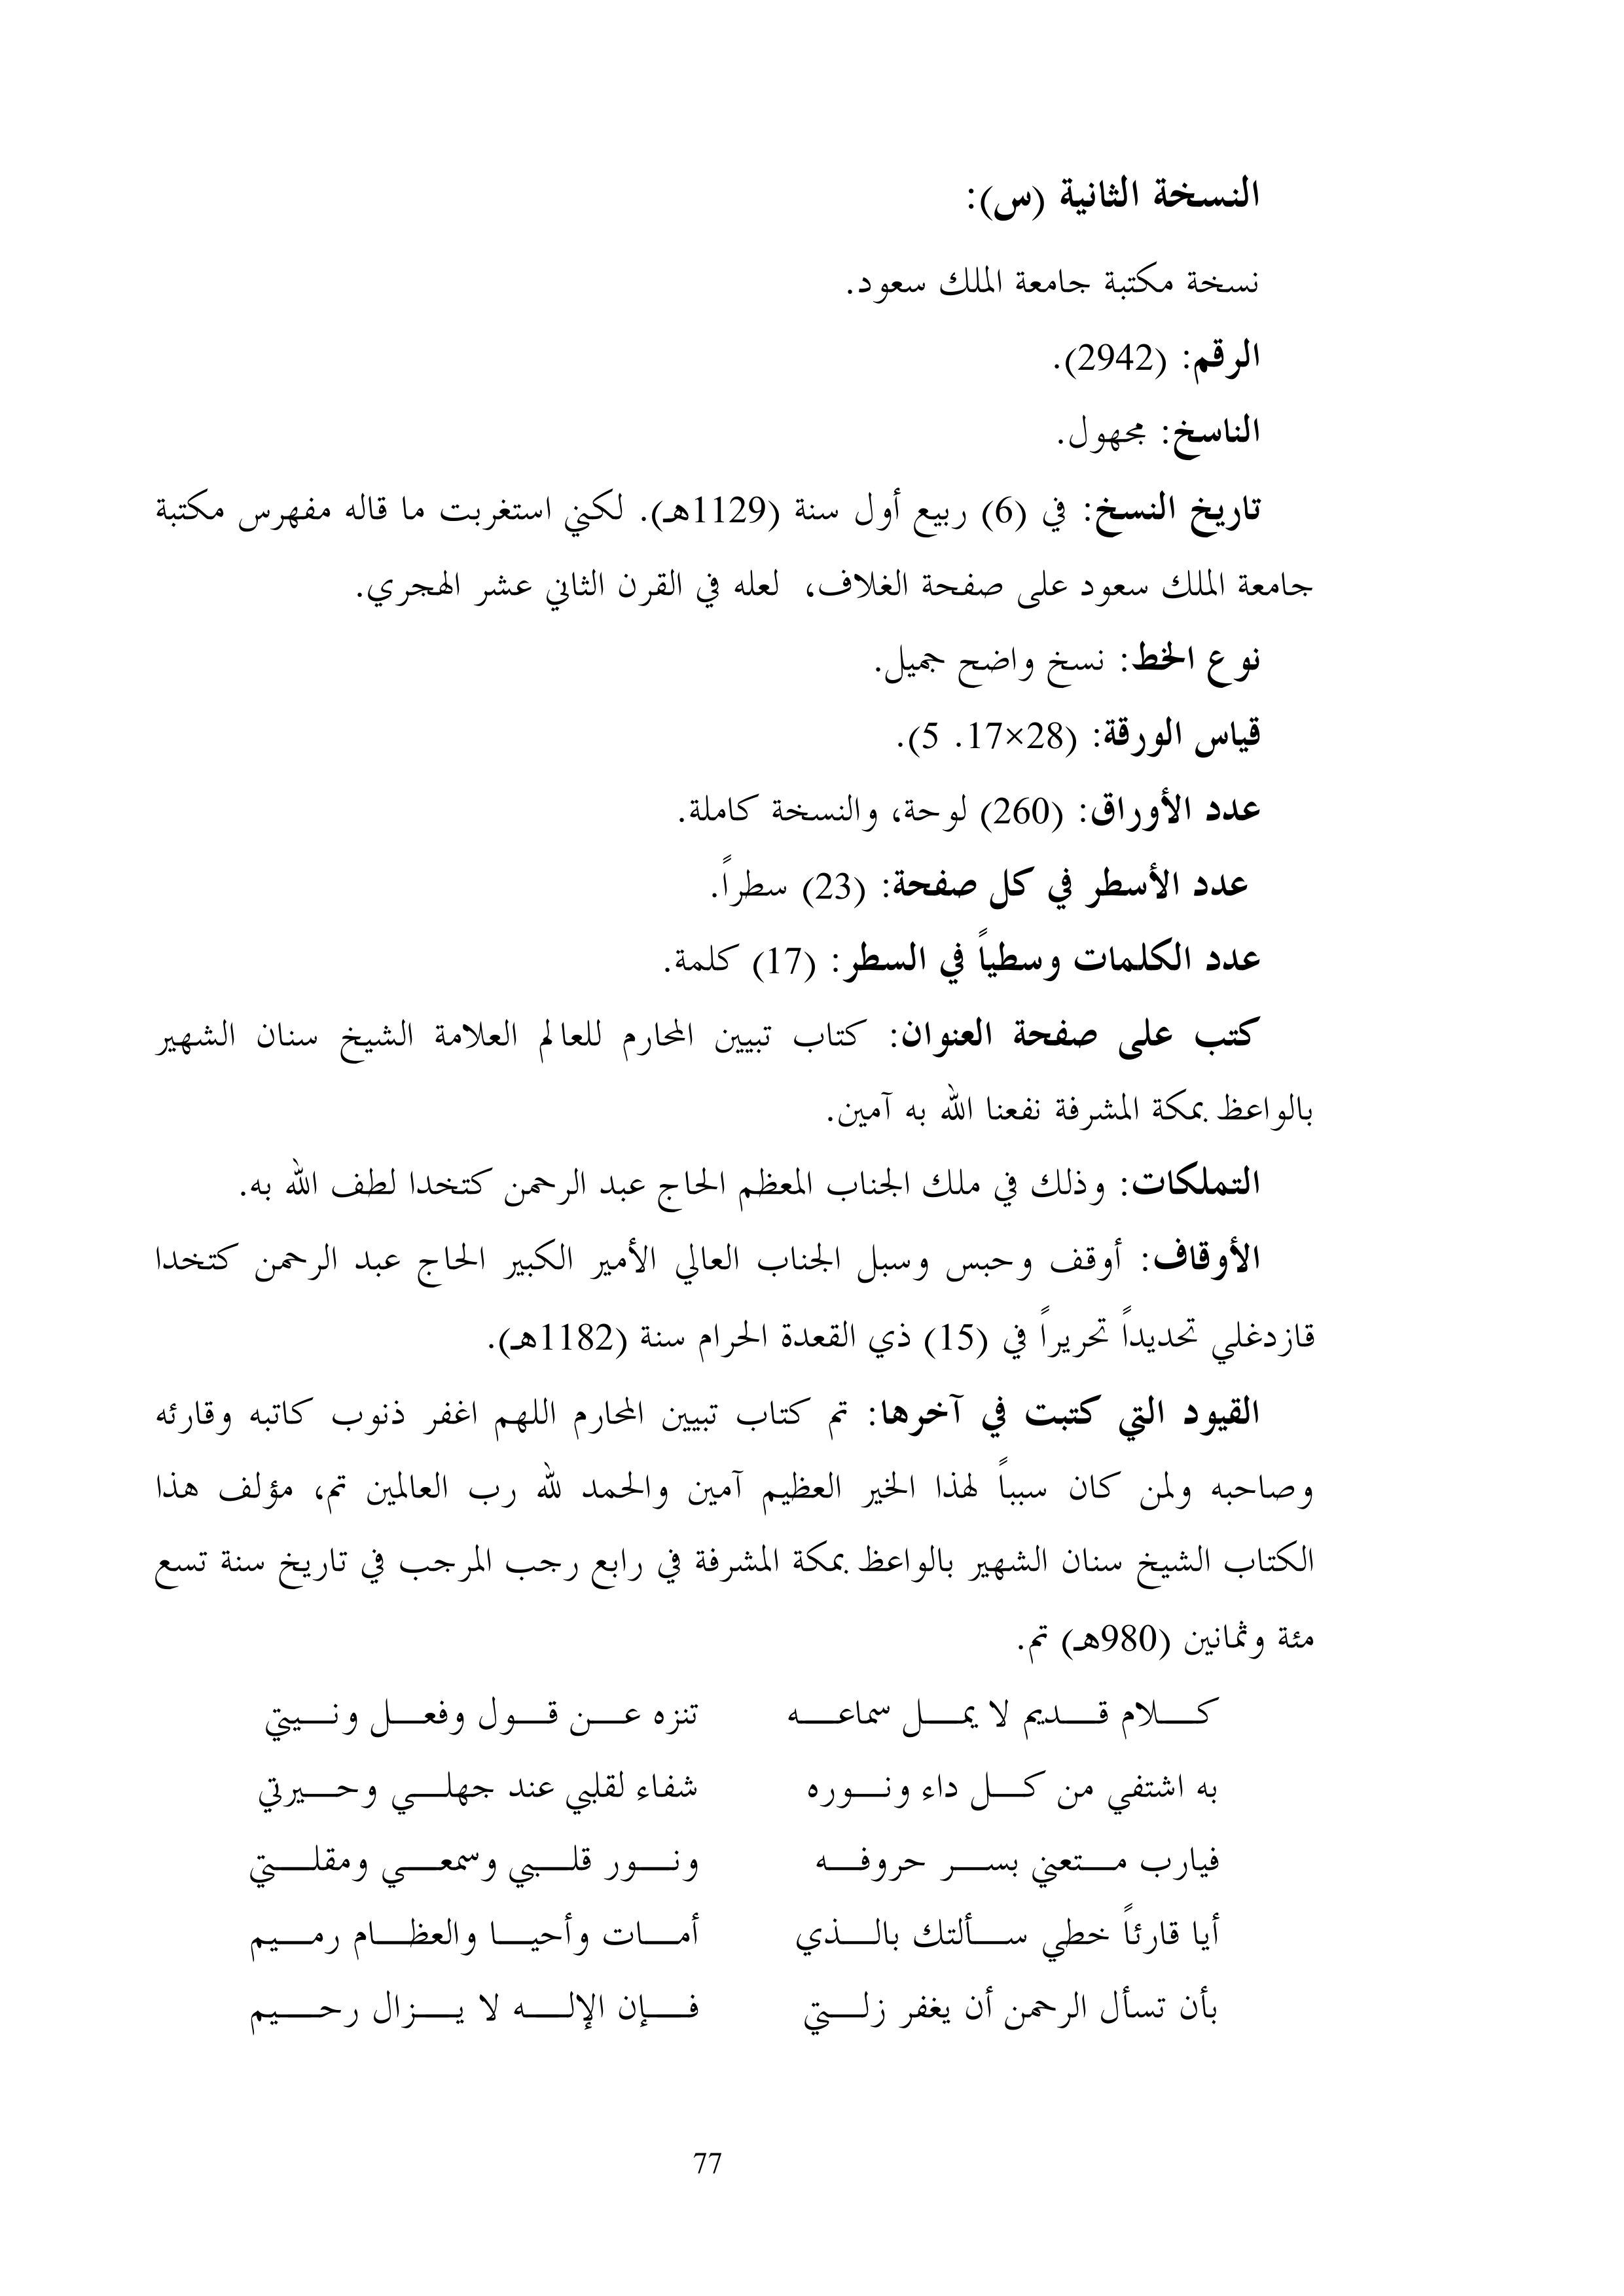 النسخة الثانية (س):
نسخة مكتبة جامعة الملك سعود.
الرقم: (2942).
الناسخ: مجهول.
تاريخ النسخ: في (6) ربيع أول سنة (1129هـ). لكني استغربت ما قاله مفهرس مكتبة
جامعة الملك سعود على صفحة الغلاف، لعله في القرن الثاني عشر الهجري.
نوع الخط: نسخ واضح جميل.
قياس الورقة: (28×17. 5).
عدد الأوراق: (260) لوحة، والنسخة كاملة.
عدد الأسطر في كل صفحة: (23) سطراً.
عدد الكلمات وسطياً في السطر: (17) كلمة.
كتب على صفحة العنوان: كتاب تبيين المحارم للعالم العلامة الشيخ سنان الشهير
بالواعظ بمكة المشرفة نفعنا الله به آمين.
التملكات: وذلك في ملك الجناب المعظم الحاج عبد الرحمن كتخدا لطف الله به.
الأوقاف: أوقف وحبس وسبل الجناب العالي الأمير الكبير الحاج عبد الرحمن كتخدا
قازدغلي تحديداً تحريراً في (15) ذي القعدة الحرام سنة (1182هـ).
القيود التي كتبت في آخرها: تم كتاب تبيين المحارم اللهم اغفر ذنوب كاتبه وقارئه
وصاحبه ولمن كان سبباً لهذا الخير العظيم آمين والحمد لله رب العالمين تم، مؤلف هذا
الكتاب الشيخ سنان الشهير بالواعظ بمكة المشرفة في رابع رجب المرجب في تاريخ سنة تسع
مئة وثمانين (980هـ) تم.
كلام قديم لا يمل سماعه تنزه عن قول وفعل ونيتي
به اشتفي من كل داء ونوره شفاء لقلبي عند جهلي وحيرتي
فيارب متعني بسر حروفه ونور قلبي وسمعي ومقلتي
أيا قارئاً خطي سألتك بالذي أمات وأحيا والعظام رميم
بأن تسأل الرحمن أن يغفر زلتي فإن الإله لا يزال رحيم
77